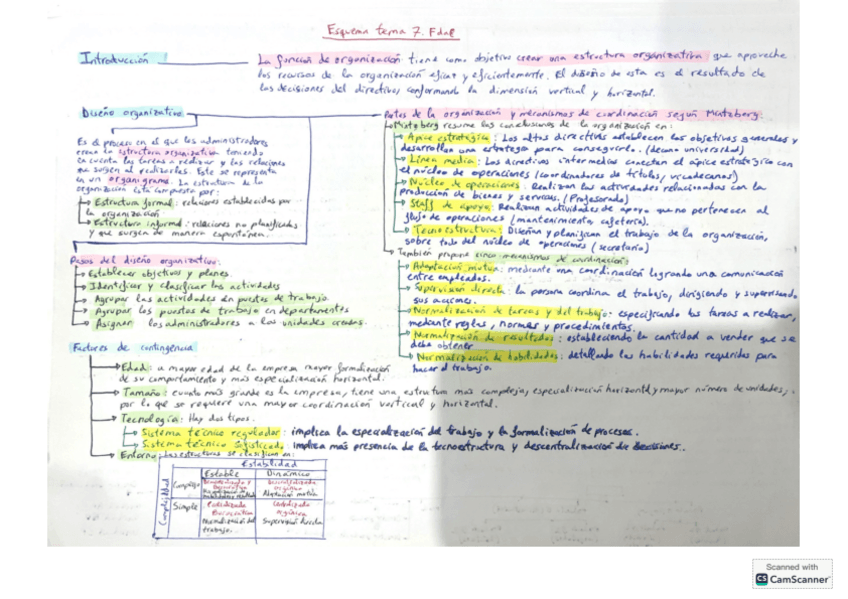 Esquema tema 7. FdaE
Introducción
La función de organización tiene como objetivo crear una estructura organizativa que aproveche
los recursos de la organización eficaz y eficientemente. El diseño de esta es el resultado de
las decisiones del directivos conformando la dimensión vertical y horizontal.
Diseño organizativo
Es el proceso en el que los administradores
crean la estructura organizativa teniendo
en cuenta las tareas a realizar y las relaciones
que surgen al realizarlas. Este se representa
en un organigrama. La estructura de la
organización está compuesta por:
Estructura formal: relaciones establecidas por
la organización
Estructura informal: relaciones no planificadas
y que surgen de manera espontánea.
Pasos del diseño organizativo:
Establecer objetivos y planes
Identificar y clasificar las actividades
Agrupar las actividades en puestos de trabajo
Agrupar los puestos de trabajo en departamentos
Asignar los administradores a las unidades creadas.
Partes de la organización y mecanismos de coordinación según Mintzberg
Mintzberg resume las conclusiones de la organización en:
Ápice estratégica: Los altos directivos establecen los objetivos generales y
desarrollan una estrategia para conseguirlo. (decano universidad)
Línea media: Los directivos intermedios conectan el ápice estratégico con
el núcleo de operaciones (coordinadores de títulos, vicedecanos)
Núcleo de operaciones: Realizan las actividades relacionadas con la
producción de bienes y servicios. (Profesorado)
Staff de apoyo: Realizan actividades de apoyo que no pertenecen al
flujo de operaciones (mantenimiento, cafetería).
Tecnoestructura: Diseñan y planifican el trabajo de la organización,
sobre todo del núcleo de operaciones (secretario)
También propone cinco mecanismos de coordinación:
Adaptación mutua: mediante una coordinación logrando una comunicación
entre empleados.
Supervisión directa: la persona coordina el trabajo, dirigiendo y supervisando
sus acciones.
Normalización de tareas y del trabajo: especificando las tareas a realizar,
mediante reglas, normas y procedimientos.
Normalización de resultados: estableciendo la cantidad a vender que se
debe obtener
Normalización de habilidades: detallando las habilidades requeridas para
hacer el trabajo.
Factores de contingencia
Edad: a mayor edad de la empresa mayor formalización
de su comportamiento y más especialización horizontal.
Tamaño: cuanto más grande es la empresa, tiene una estructura más compleja, especialización horizontal y mayor número de unidades,
por lo que se requiere una mayor coordinación vertical y horizontal.
Tecnología: Hay dos tipos.
Sistema técnico regulador: implica la especialización del trabajo y la formalización de procesos.
Sistema técnico sofisticado: implica más presencia de la tecnoestructura y descentralización de decisiones.
Entorno: las estructuras se clasifican en:
Estabilidad
Estable Dinámico
Complejidad
Complejo
Adaptación mutua
Simple
Centralizada
Burocrática
Normalización del
trabajo.
Centralizada
orgánica
Supervisión directa
Scanned with
CS CamScanner